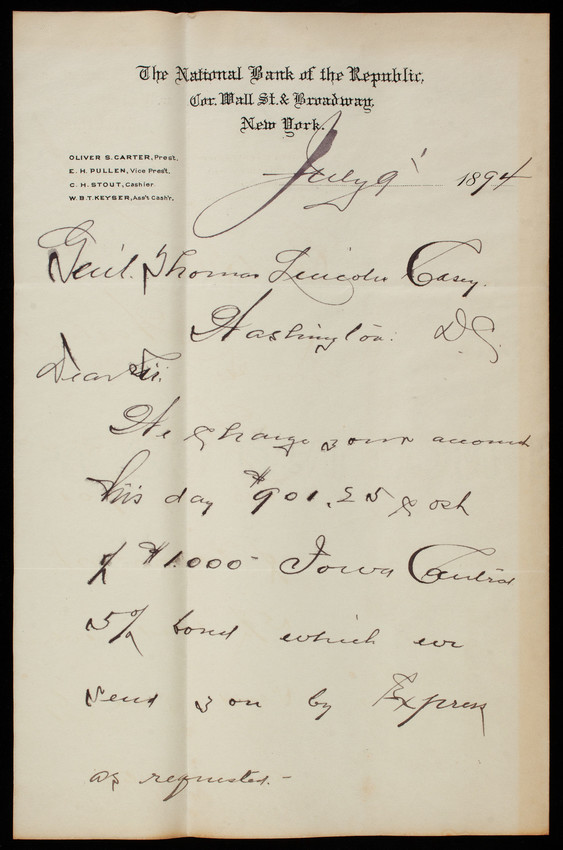 The National Bank of the Republic,
Cor. Wall St. & Broadway,
New York.
OLIVER S. CARTER, Prest.,
E. H. PULLEN, Vice Prest.,
C. H. STOUT, Cashier
W. B. T. KEYSER, Ass't Cash'r,
July 9' 1894
Gen'l. Thomas Lincoln Casey.
Washington. D.C.
Dear Sir.
We charge your account
this day $901.25 cost
of $1.000- Iowa Central
5% bond which we
send you by Express
as requested.-